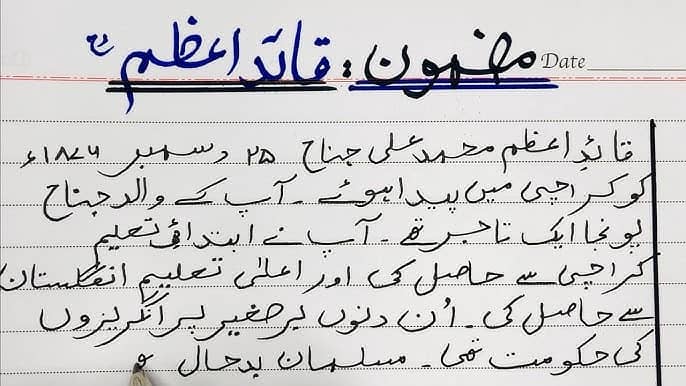 Date
مضمون : قائد اعظم ؒ
قائدِ اعظم محمد علی جناح ۲۵ دسمبر ۱۸۷۶ء
کو کراچی میں پیدا ہوئے ۔ آپ کے والد جناح
پونجا ایک تاجر تھے ۔ آپ نے ابتدائی تعلیم
کراچی سے حاصل کی اور اعلٰی تعلیم انگلستان
سے حاصل کی ۔ اُن دنوں برصغیر پر انگریزوں
کی حکومت تھی ۔ مسلمان بدحال